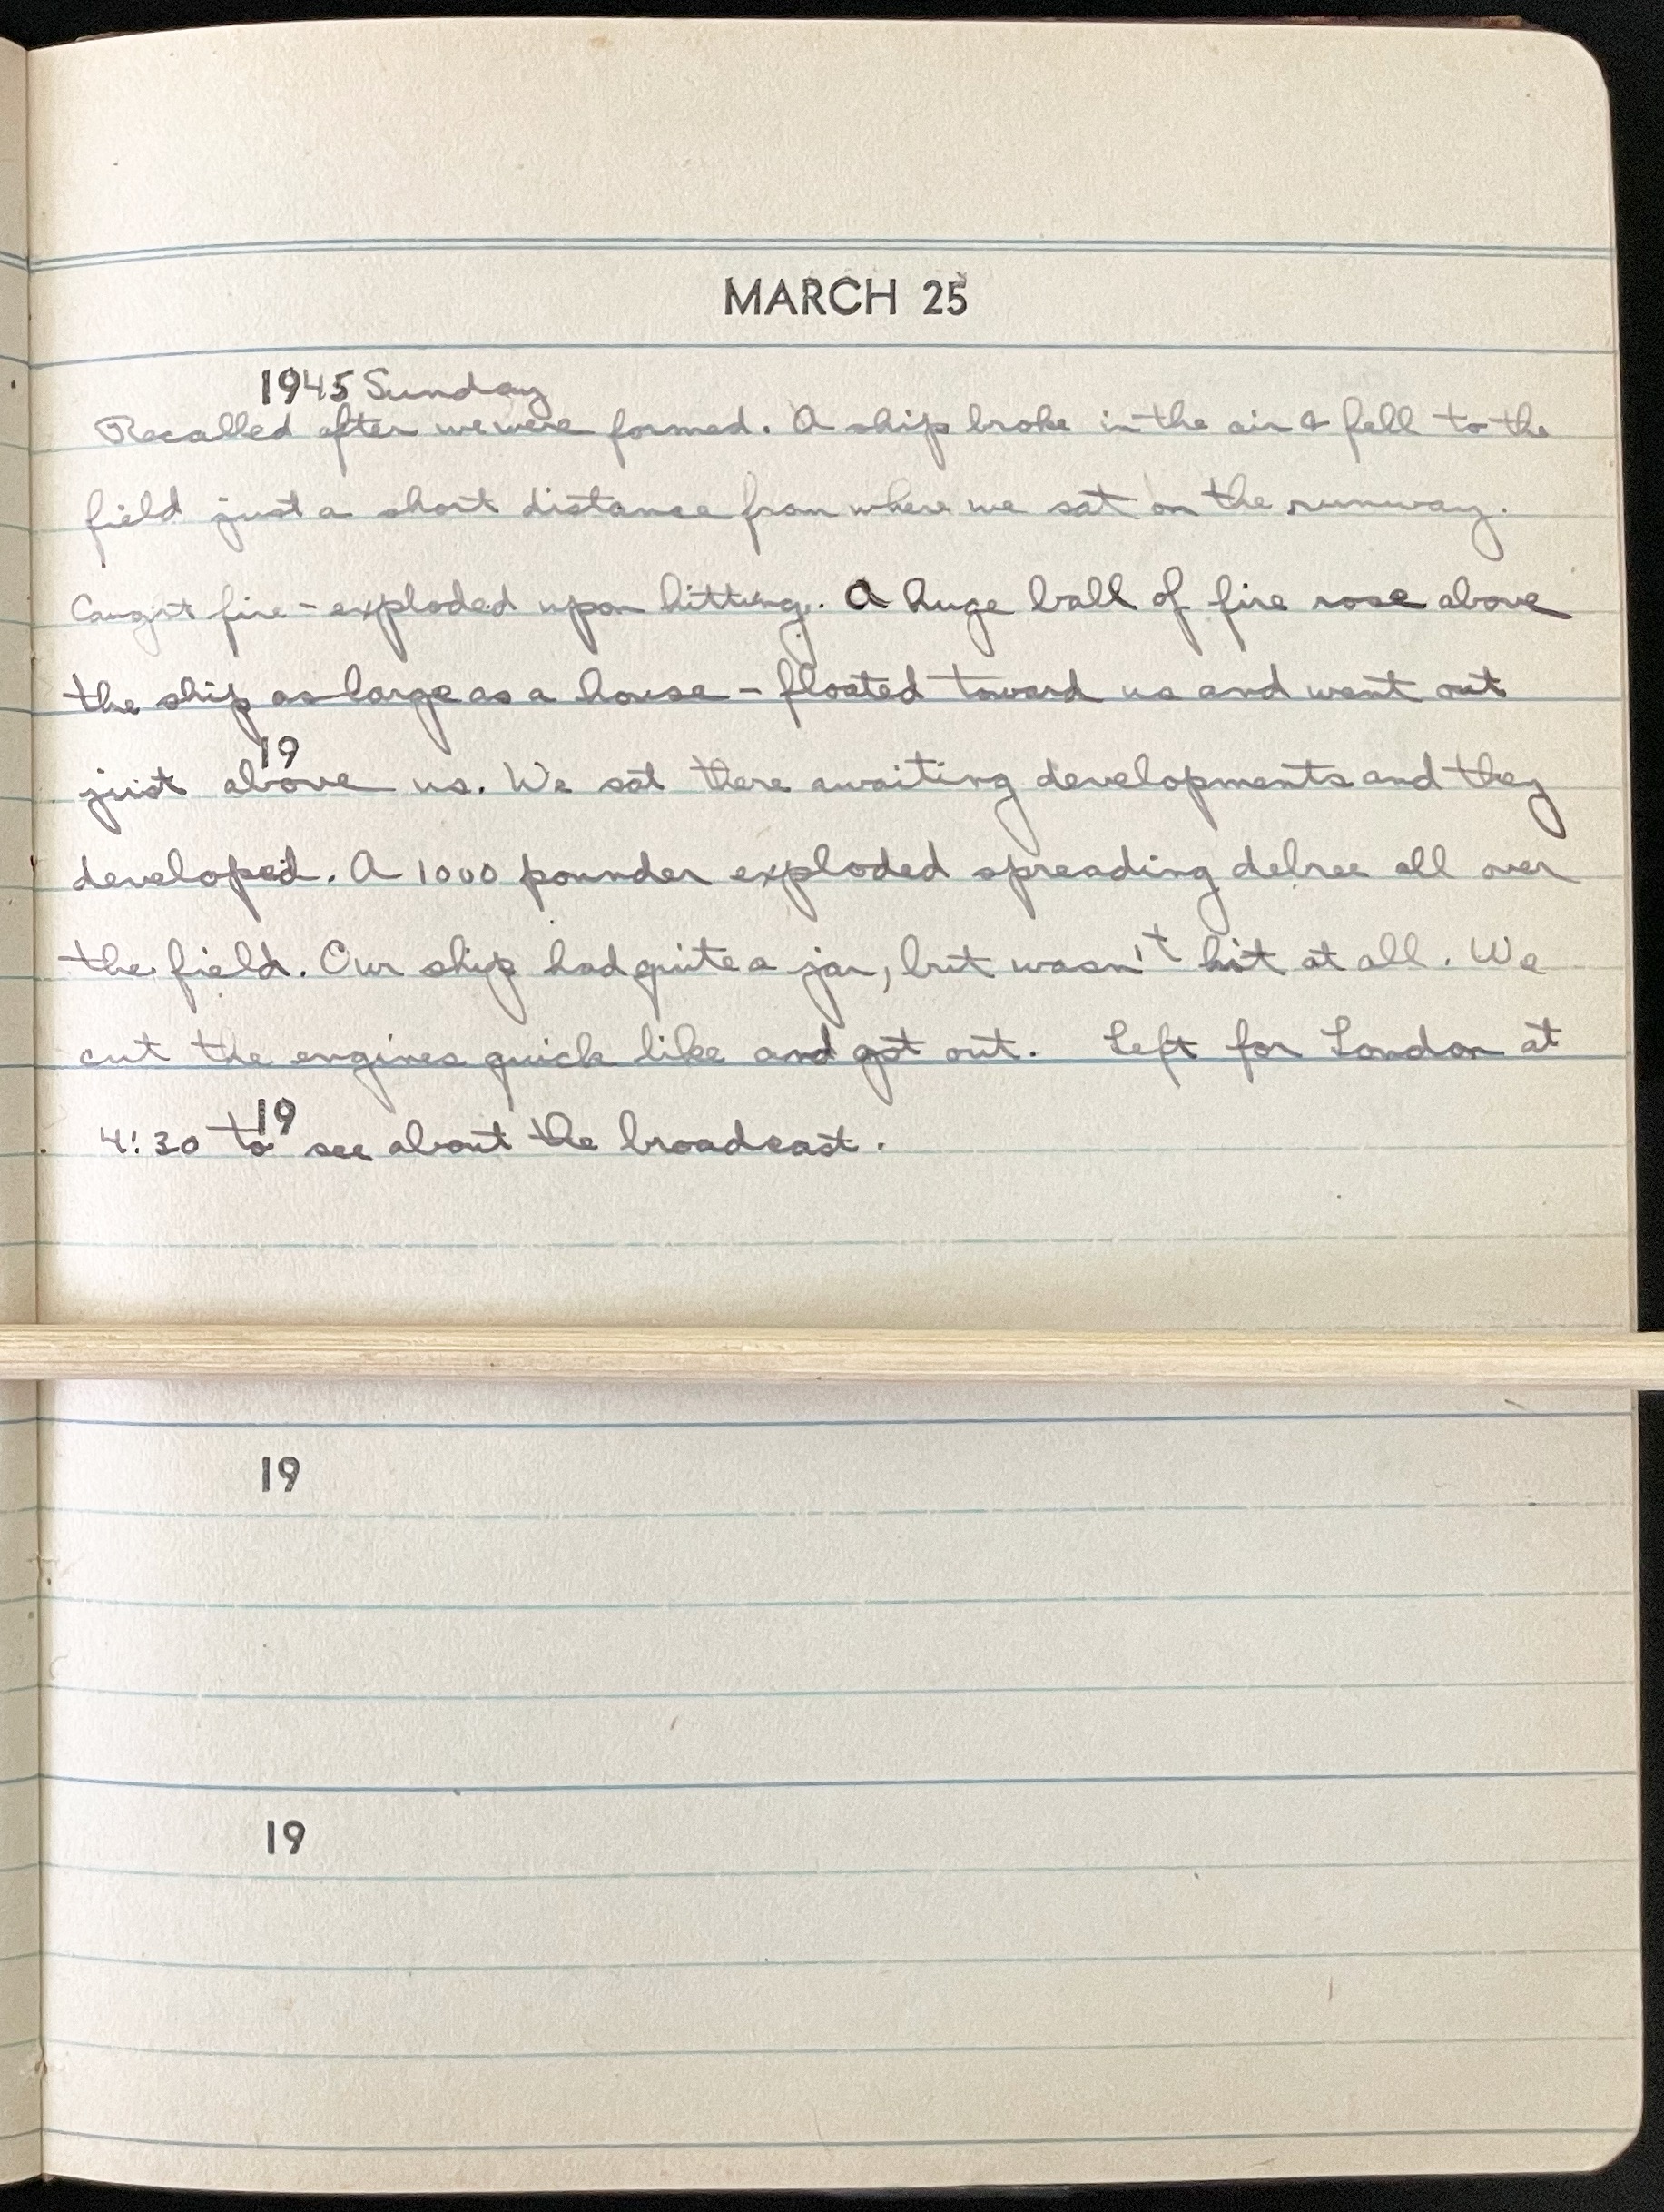 MARCH 25
1945 Sunday
Recalled after we were formed. A ship broke in the air & fell to the
field just a short distance from where we sat on the runway.
Caught fire - exploded upon hitting. A huge ball of fire rose above
the ship as large as a house - floated toward us and went out
19
just above us. We sat there awaiting developments and they
developed. A 1000 pounder exploded spreading debree all over
the field. Our ship had quite a jar, but wasn't hit at all. We
cut the engines quick like and got out. Left for London at
19
4:30 to see about the broadcast.
19
19